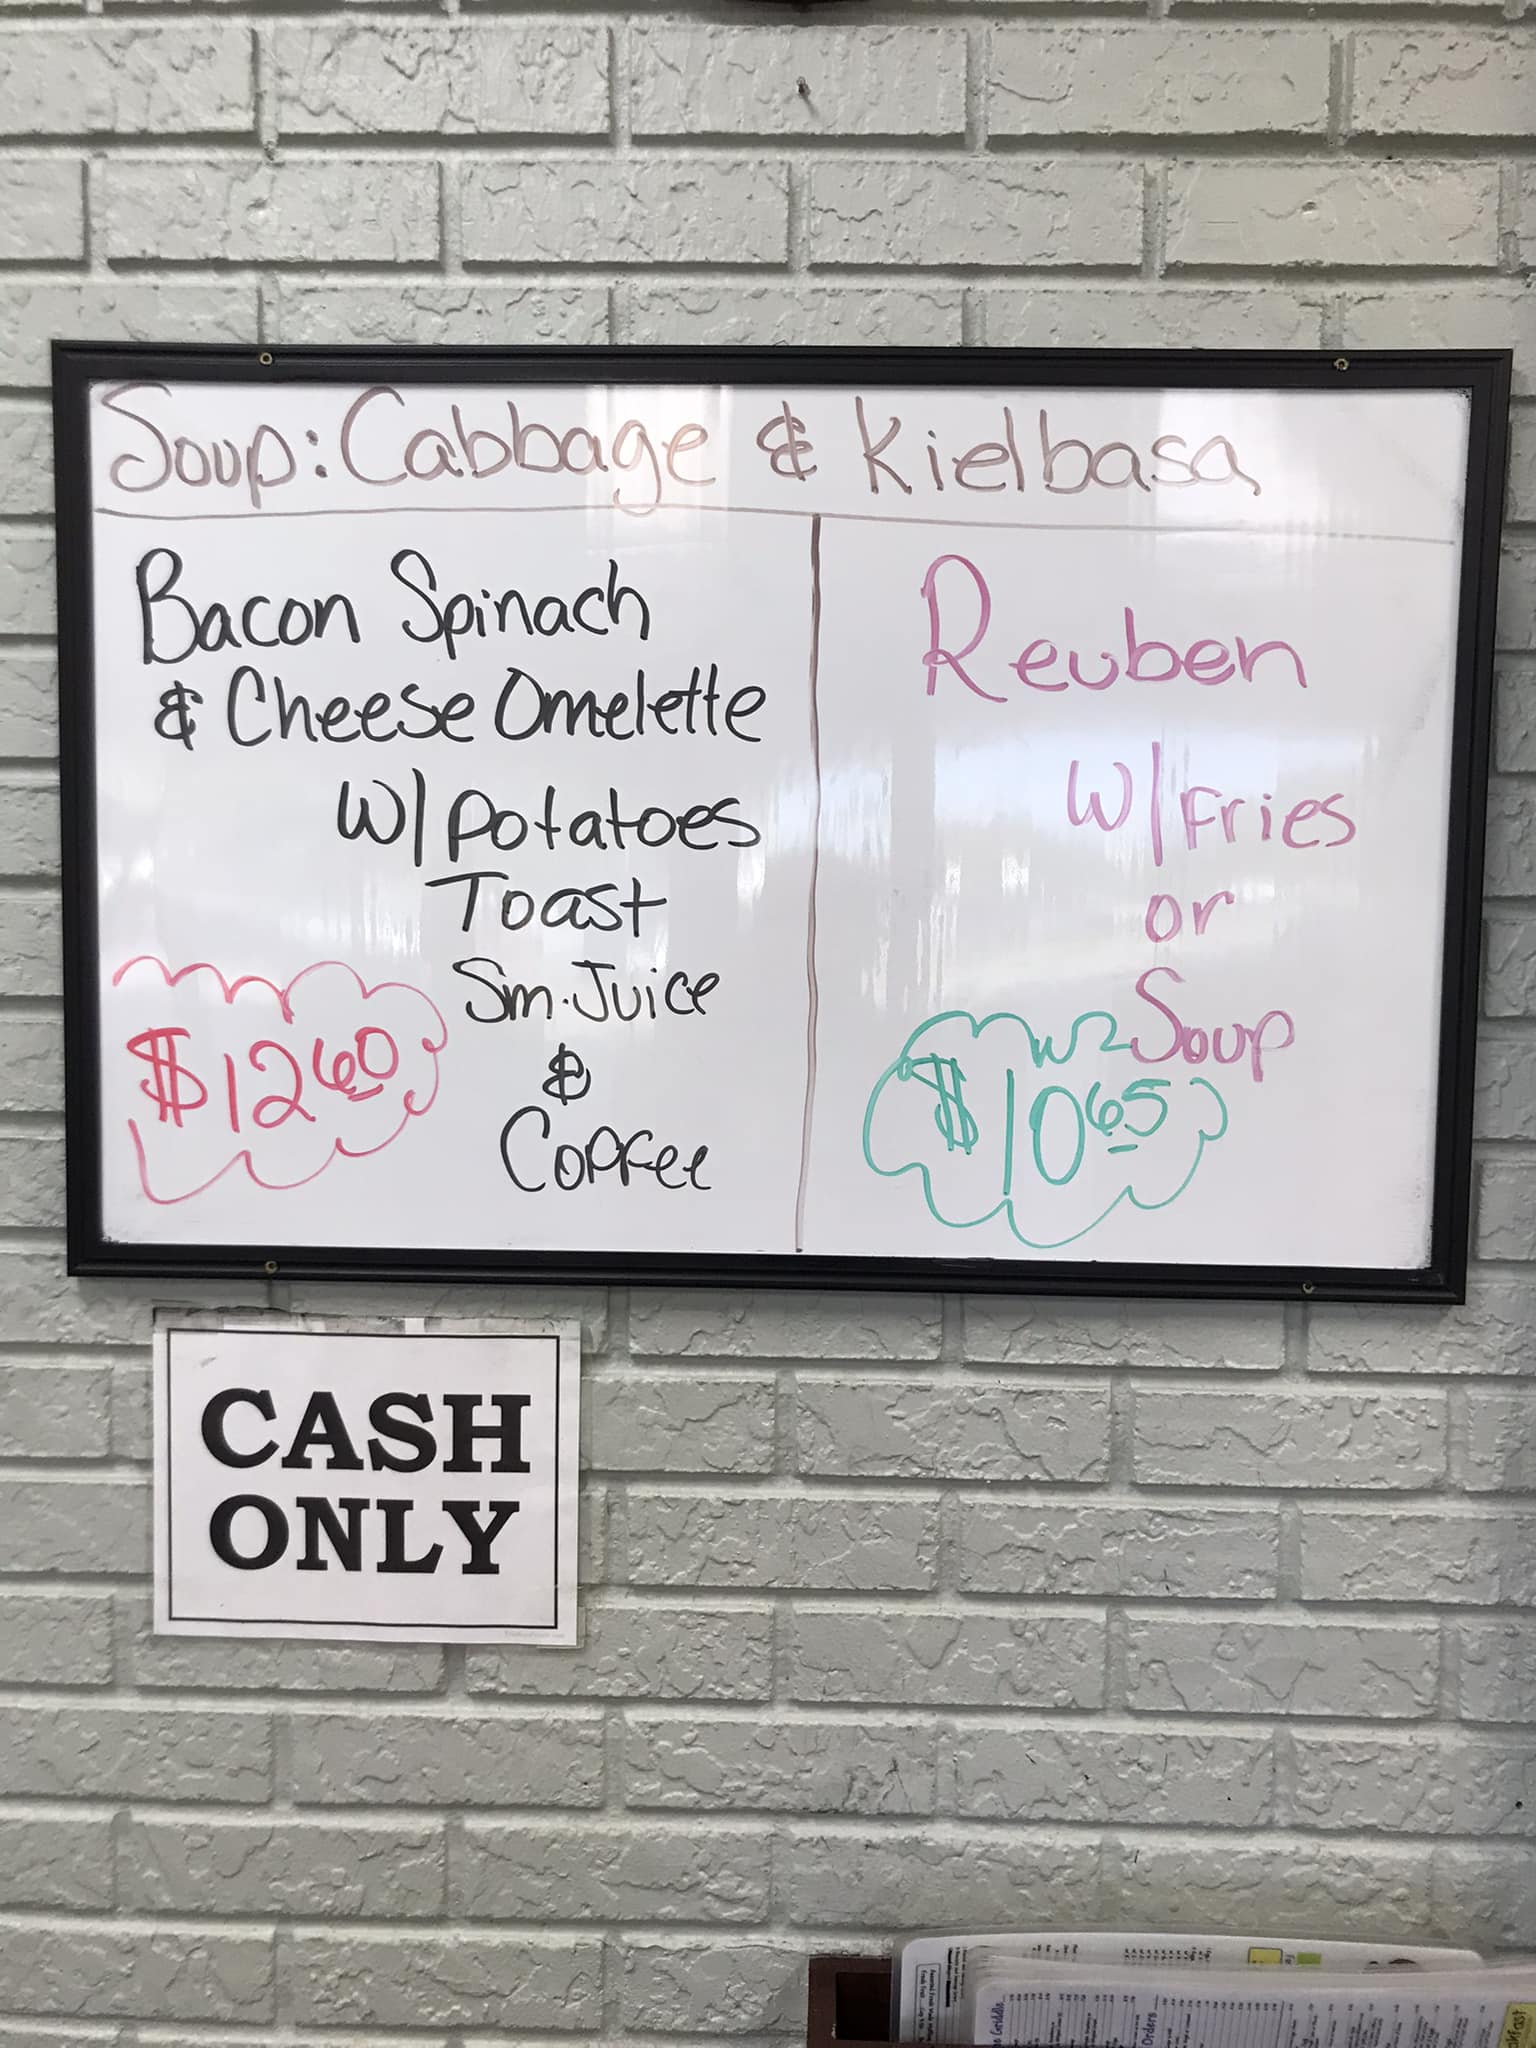 Soup: Cabbage & Kielbasa
Bacon Spinach
& Cheese Omelette
W/Potatoes
Toast
Sm. Juice
&
Coffee
$12 60
Reuben
W/Fries
or
Soup
$10 65
CASH
ONLY
Orders